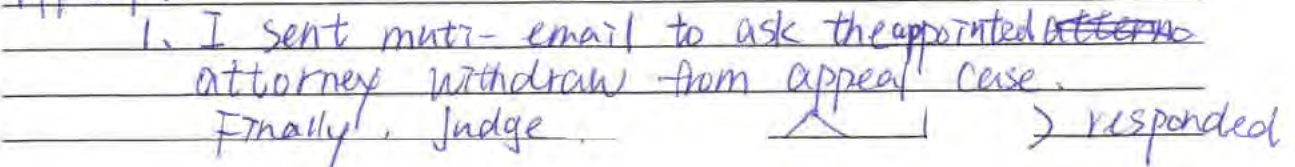 1. I sent muti-email to ask the appointed
attorney withdraw from appeal case.
Finally, Judge responded